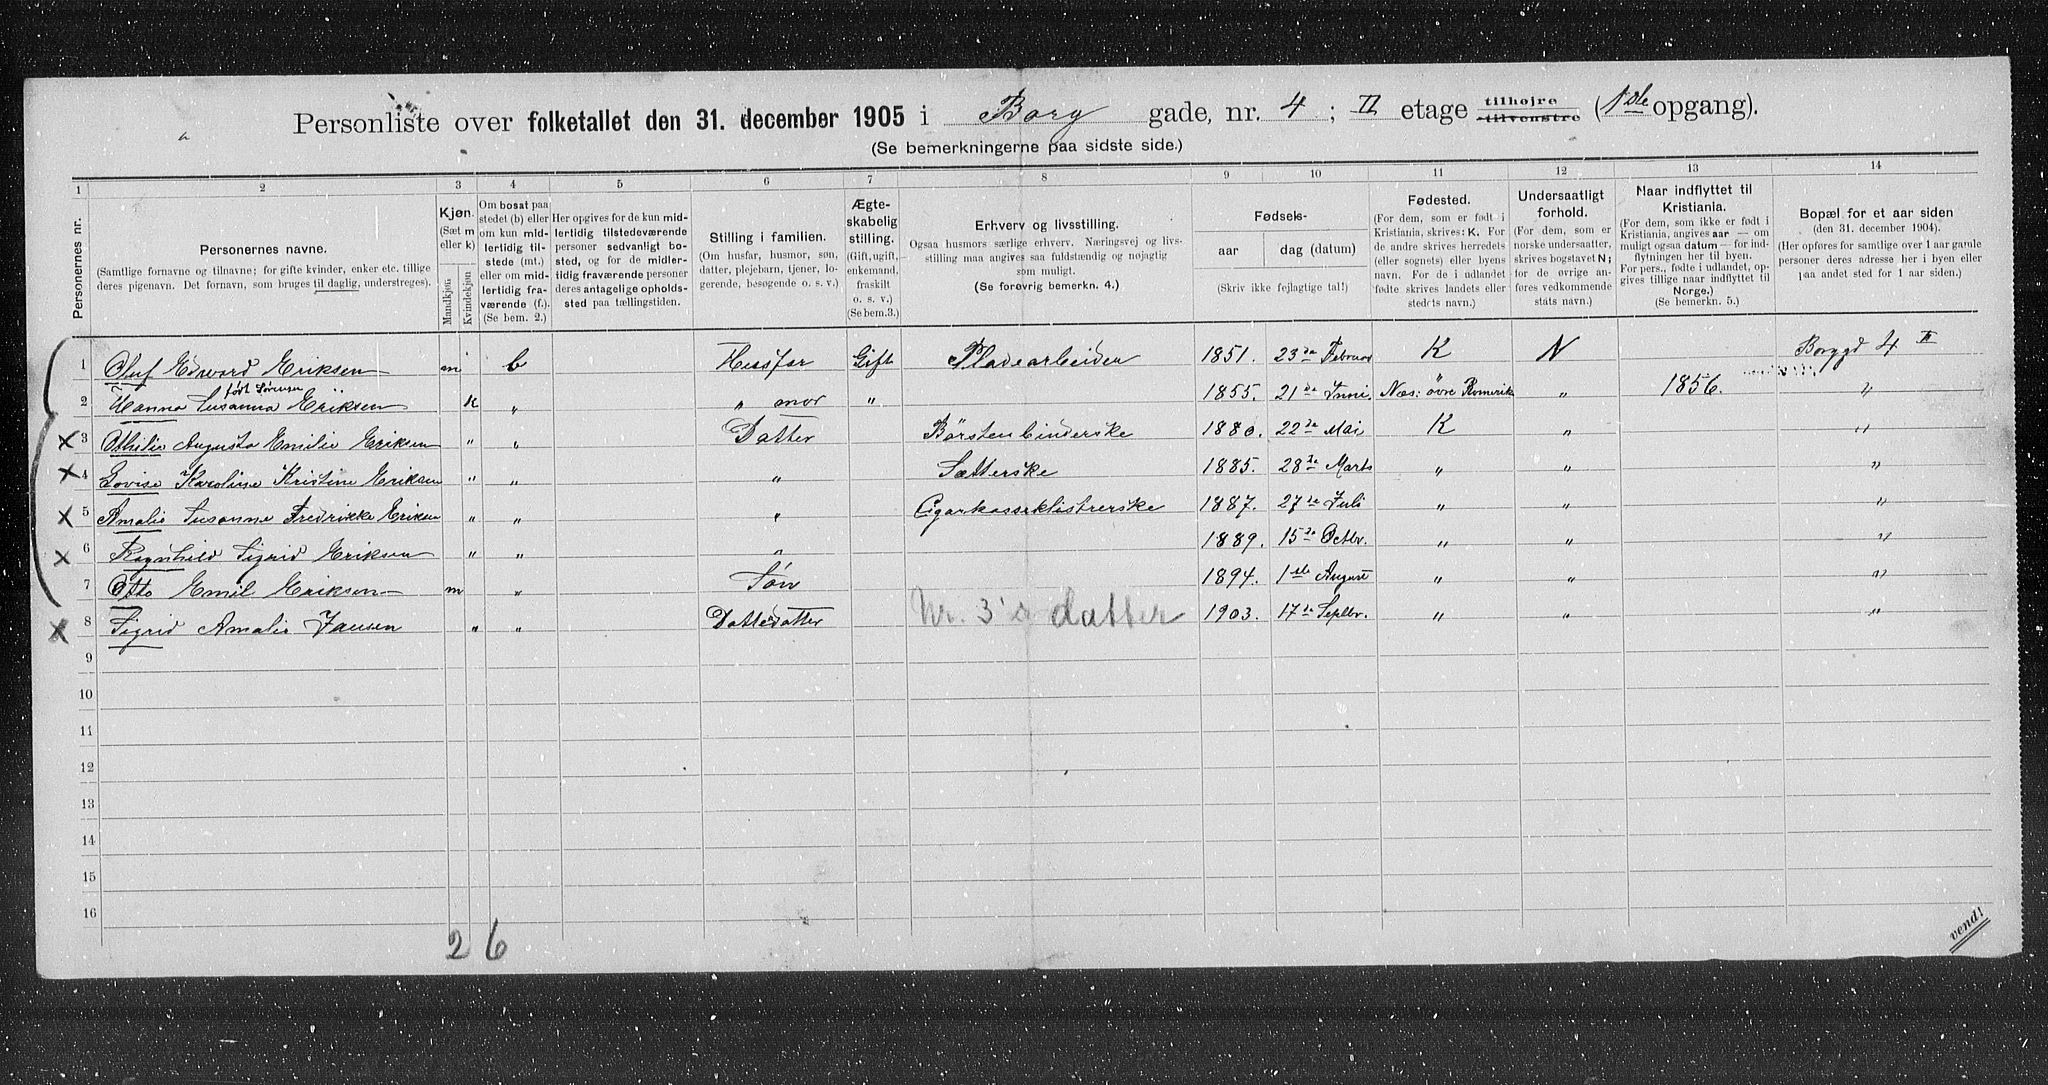 Personliste over folketallet den 31. december 1905 i Borg gade, nr. 4 ; II etage tilhøjre tilvenstre (1ste opgang).
(Se bemerkningerne paa sidste side.)
1 2 3 4 5 6 7 8 9 10 11 12 13 14
Personernes nr.
Personernes navne.
(Samtlige fornavne og tilnavne; for gifte kvinder, enker etc. tillige
deres pigenavn. Det fornavn, som bruges til daglig, understreges).
Kjøn.
(Sæt m
eller k)
Mandkjøn
Kvindekjøn
Om bosat paa
stedet (b) eller
om kun mid-
lertidig til-
stede (mt.)
eller om mid-
lertidig fra-
værende (f.).
(Se bem. 2.)
Her opgives for de kun mid-
lertidig tilstedeværende
personer sedvanligt bo-
sted, og for de midler-
tidig fraværende personer
deres antagelige opholds-
sted paa tællingstiden.
Stilling i familien.
(Om husfar, husmor, søn,
datter, plejebarn, tjener, lo-
gerende, besøgende o. s. v.)
Ægte-
skabelig
stilling.
(Gift, ugift,
enkemand,
fraskilt
o. s. v.)
(Se bem.3.)
Erhverv og livsstilling.
Ogsaa husmors særlige erhverv. Næringsvej og livs-
stilling maa angives saa fuldstændig og nøjagtig
som muligt.
(Se forøvrig bemerkn. 4.)
Fødsels-
aar
dag (datum)
(Skriv ikke fejlagtige tal!)
Fødested.
(For dem, som er født i
Kristiania, skrives: K. For
de andre skrives herredets
(eller sognets) eller byens
navn. For de i udlandet
fødte skrives landets eller
stedets navn.)
Undersaatligt
forhold.
(For dem, som er
norske undersaatter,
skrives bogstavet N;
for de øvrige an-
føres vedkommende
stats navn.)
Naar indflyttet til
Kristiania.
(For dem, som ikke er født i
Kristiania, angives aar — om
muligt ogsaa datum — for ind-
flytningen her til byen.
For pers., fødte i udlandet, op-
gives tillige naar indflyttet til
Norge.)
(Se bemerkn. 5.)
Bopæl for et aar siden
(den 31. december 1904).
(Her opføres for samtlige over 1 aar gamle
personer deres adresse her i byen eller
paa andet sted for 1 aar siden.)
1 Oluf Edvard Eriksen m b Husfar Gift Pladearbeider 1851. 23de Februar K N Borggd 4 II
født Sørensen
2 Hanna Susanna Eriksen k " " mor " 1855. 21de Juni Næs: øvre Romerike " 1856. "
x 3 Othilie Augusta Emilie Eriksen " " Datter Børstenbinderske 1880. 22de Mai K " "
x 4 Lovise Karoline Kristine Eriksen " " " Sætterske 1885. 28de Marts " " "
x 5 Amalie Susanne Fredrikke Eriksen " " " Cigarkasseklistrerske 1887. 27de Juli " " "
x 6 Ragnhild Sigrid Eriksen " " " 1889. 15de Octbr. " " "
7 Otto Emil Eriksen m " Søn 1894. 1ste August " " "
x 8 Sigrid Amalie Jansen " " Datterdatter Nr. 3's datter 1903. 17de Septbr. " " "
9
10
11
12
13
14
15
16
2 6
vend!